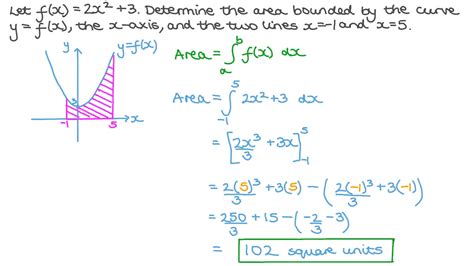 Let f(x) = 2x² + 3. Determine the area bounded by the curve
y = f(x), the x-axis, and the two lines x=-1 and x=5.
y
y=f(x)
3
-1
5
x
Area = ∫ₐᵇ f(x) dx
Area = ∫₋₁⁵ 2x² + 3 dx
= [2x³/3 + 3x]₋₁⁵
= 2(5)³/3 + 3(5) - (2(-1)³/3 + 3(-1))
= 250/3 + 15 - (-2/3 - 3)
= 102 square units